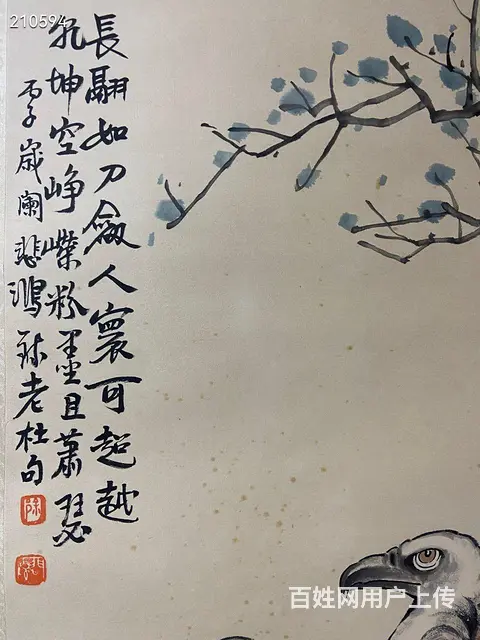 210594
長翮如刀劍人寰可超越
乾坤空崢嶸粉墨且蕭瑟
丙子歲闌悲鴻錄老杜句
百姓网用户上传